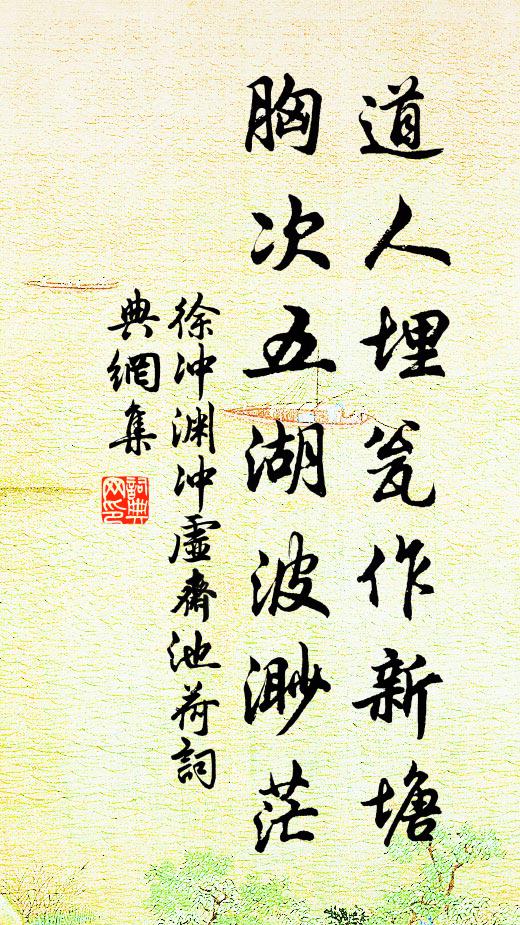 道人埋瓮作新塘
胸次五湖波渺茫
徐冲渊冲虚斋池荷詞
典網集
詞典网印